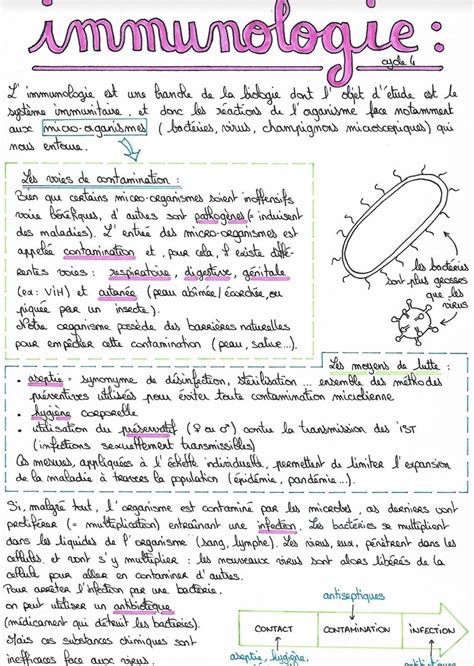 immunologie :
cycle 4
L'immunologie est une branche de la biologie dont l'objet d'étude est le
système immunitaire, et donc les réactions de l'organisme face notamment
aux micro-organismes (bactéries, virus, champignons microscopiques) qui
nous entoure.
Les voies de contamination :
Bien que certains micro-organismes soient inoffensifs
voire bénéfiques, d'autres sont pathogènes (= induisent
des maladies). L'entrée des micro-organismes est
appelée contamination et, pour cela, il existe diffé-
rentes voies : respiratoire, digestive, génitale
(ex : VIH) et cutanée (peau abîmée/écorchée, ou
piquée par un insecte).
Notre organisme possède des barrières naturelles
pour empêcher cette contamination (peau, salive...).
les bactéries
sont plus grosses
que les
virus
Les moyens de lutte :
• aseptie = synonyme de désinfection, stérilisation ... ensemble des méthodes
préventives utilisées pour éviter toute contamination microbienne
• hygiène corporelle
• utilisation du préservatif (♀ ou ♂) contre la transmission des IST
(infections sexuellement transmissibles)
Ces mesures, appliquées à l'échelle individuelle, permettent de limiter l'expansion
de la maladie à travers la population (épidémie, pandémie...).
Si, malgré tout, l'organisme est contaminé par les microbes, ces derniers vont
proliférer (= multiplication) entraînant une infection. Les bactéries se multiplient
dans les liquides de l'organisme (sang, lymphe). Les virus, eux, pénètrent dans les
cellules, et vont s'y multiplier : les nouveaux virus sont alors libérés de la
cellule pour aller en contaminer d'autres.
Pour arrêter l'infection par une bactérie,
on peut utiliser un antibiotique
(médicament qui détruit les bactéries).
Mais ces substances chimiques sont
inefficaces face aux virus.
antiseptiques
CONTACT
CONTAMINATION
INFECTION
aseptie, hygiène,
antibiotiques